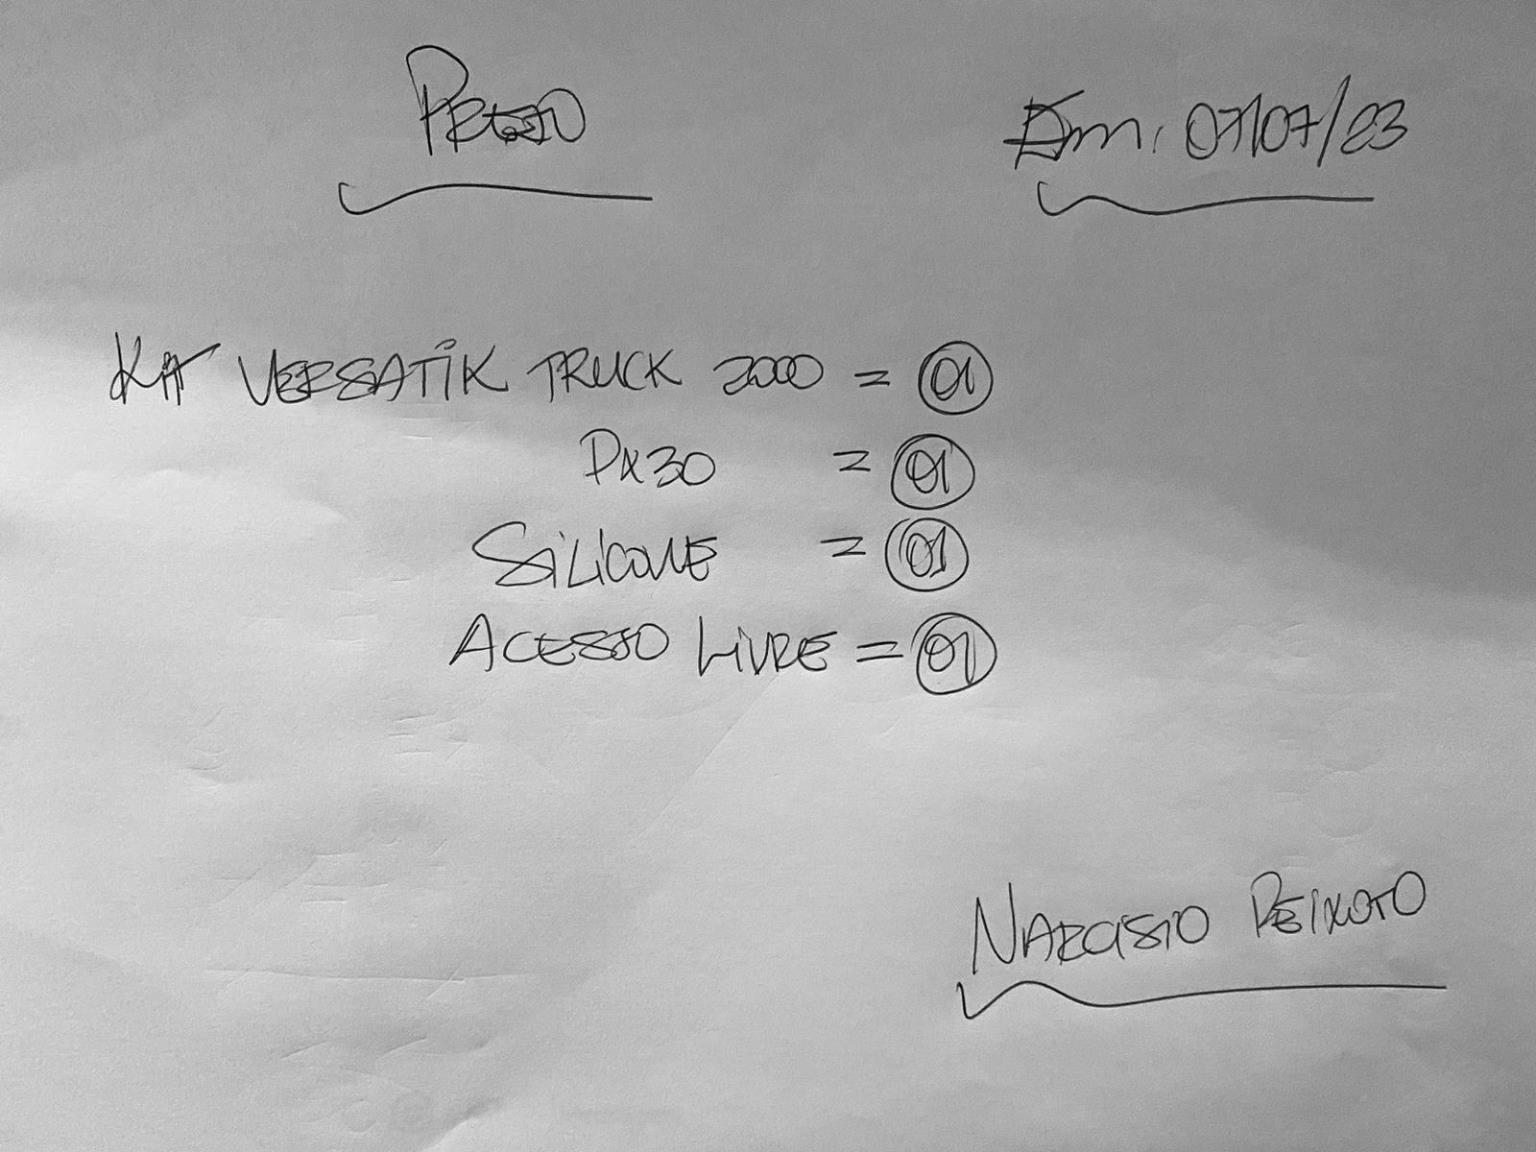 Em: 07/07/23
KIT VERSATIK TRUCK 2000 = 01
PX30 = 01
SILICONE = 01
ACESSO LIVRE = 01
NARCISIO PEIXOTO